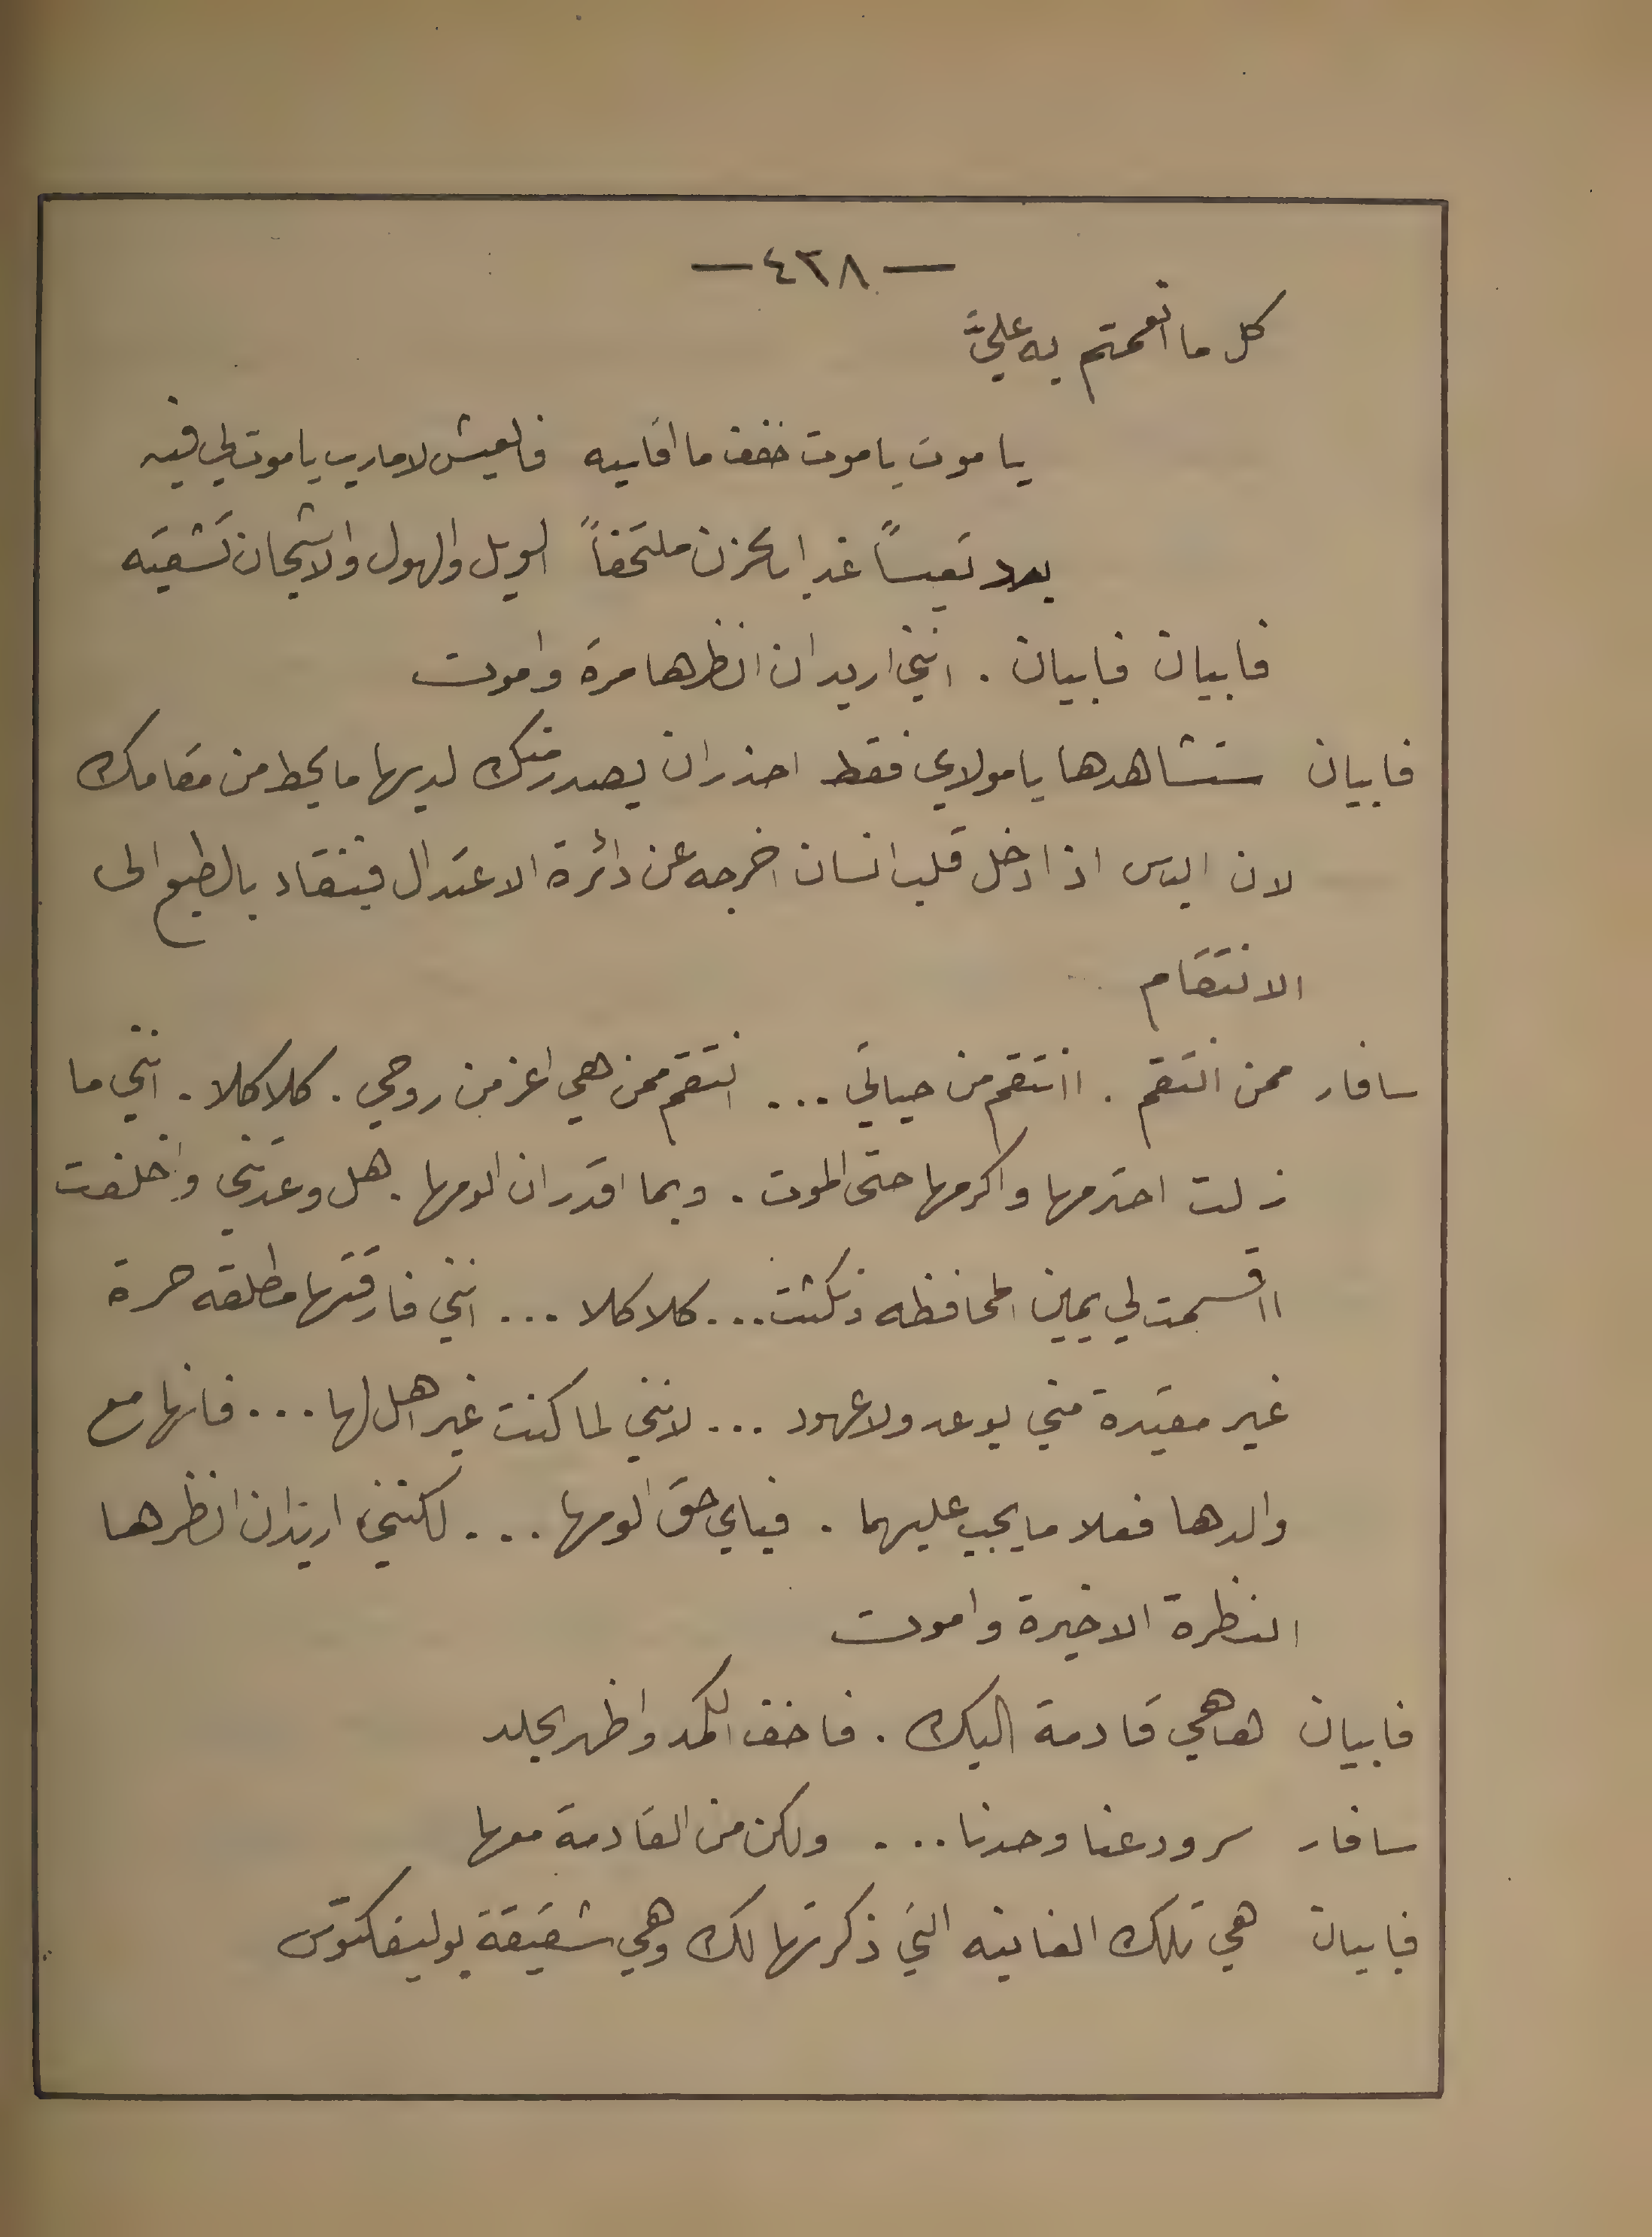 — ٤٣٨ —
كل ما انعمتم به عليَّ
يا موت يا موت خفف ما اقاسيه فالعيش لا مارب يا موت لي فيه
بعد تعيساً غدا بالحزن ملتحفاً الويل والهول والاشجان تشقيه
فابيان فابيان . انني اريد ان انظرها مرة واموت
فابيان ستشاهدها يا مولاي فقط احذر ان يصدر منك لديها ما يحط من مقامك
لان الياس اذا دخل قلب انسان اخرجه عن دائرة الاعتدال فينقاد بالطبع الى
الانتقام
سافار ممن انتقم . اانتقم من حياتي ... انتقم ممن هي اعز من روحي . كلا كلا . انني ما
زلت احترمها واكرمها حتى الموت . وبما اقدر ان الومها . هل وعدتني واخلفت
ااقسمت لي يمين المحافظه ونكثت ... كلا كلا ... انني فارقتها مطلقه حرة
غير مقيدة مني بوعد ولا عهود ... لانني لما كنت غير اهل لها ... فانها مع
والدها فعلا ما يجب عليهما . فباي حق الومها ... لكنني اريد ان انظرها
النظرة الاخيرة واموت
فابيان ها هي قادمة اليك . فاخف الكمد واظهر الجلد
سافار سر ودعنا وحدنا ... ولكن من القادمة معها
فابيان هي تلك الغانيه التي ذكرتها لك وهي شقيقة بوليفكتوس